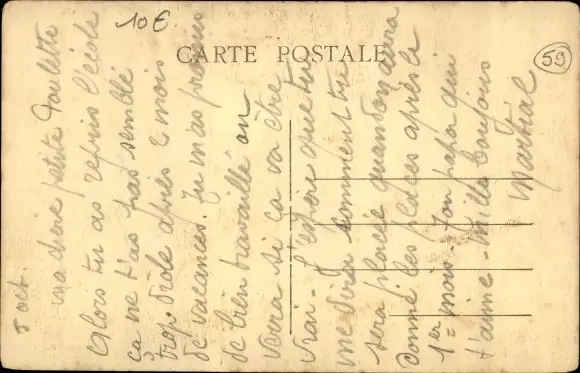 10€
CARTE POSTALE
59
5 oct.
ma chere petite Paulette
Alors tu as repris l'école
ça ne t'as pas semblé
trop drôle après 2 mois
de vacances. Tu m'as promis
de bien travaillé on
verra si ça va être
vrai - J'espère que tu
me diras comment tu
sera placée quand on aura
donné les places après le
1er mois - Ton papa qui
t'aime - Mille
Martial